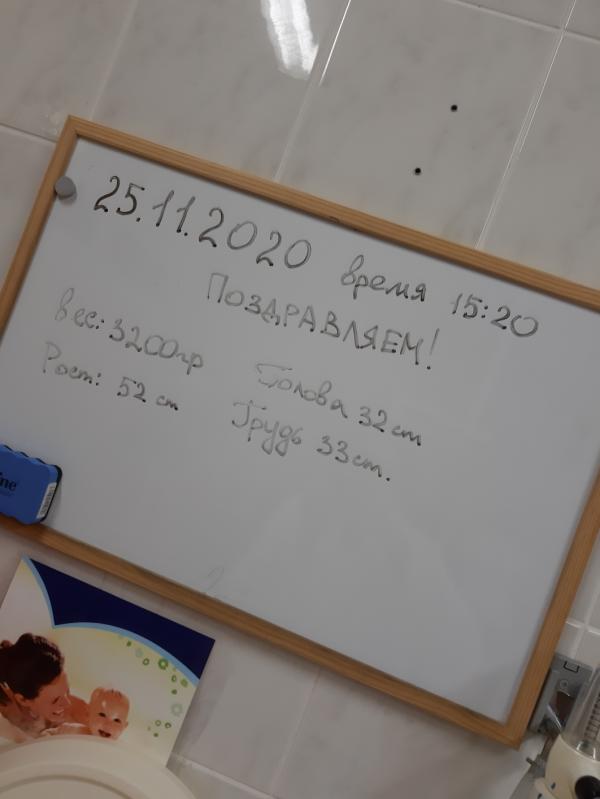 25.11.2020 время 15:20
ПОЗДРАВЛЯЕМ!
Вес: 3200гр
Рост: 52 cm
Голова 32 cm
Грудь 33 cm.